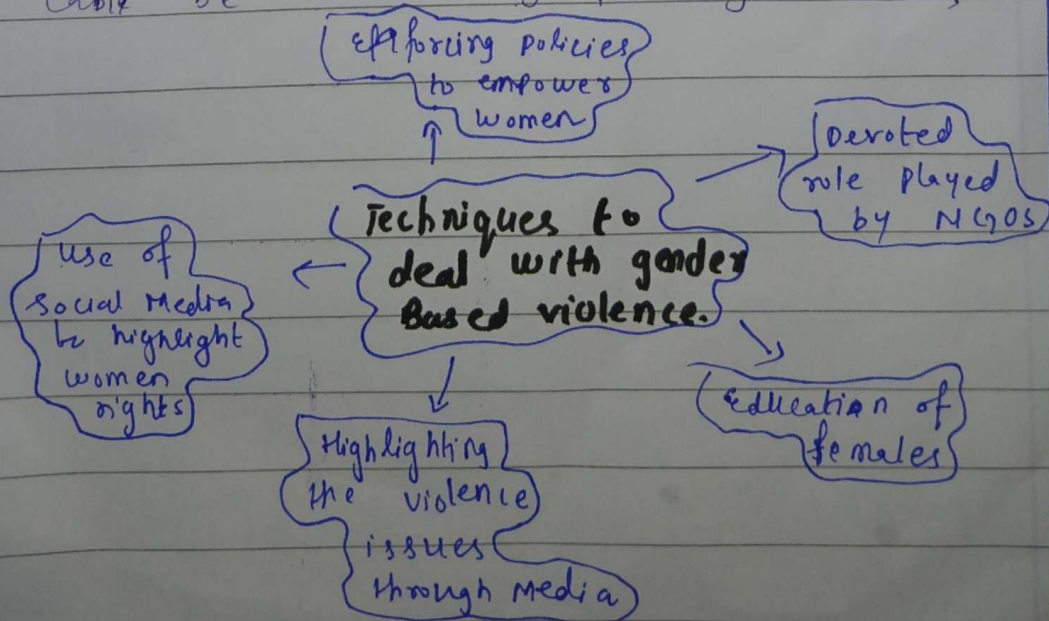 Enforcing policies
to empower
women
Devoted
role played
by NGOs
Techniques to
deal with gender
Based violence.
use of
social Media
to highlight
women
rights
Education of
females
Highlighting
the violence
issues
through Media